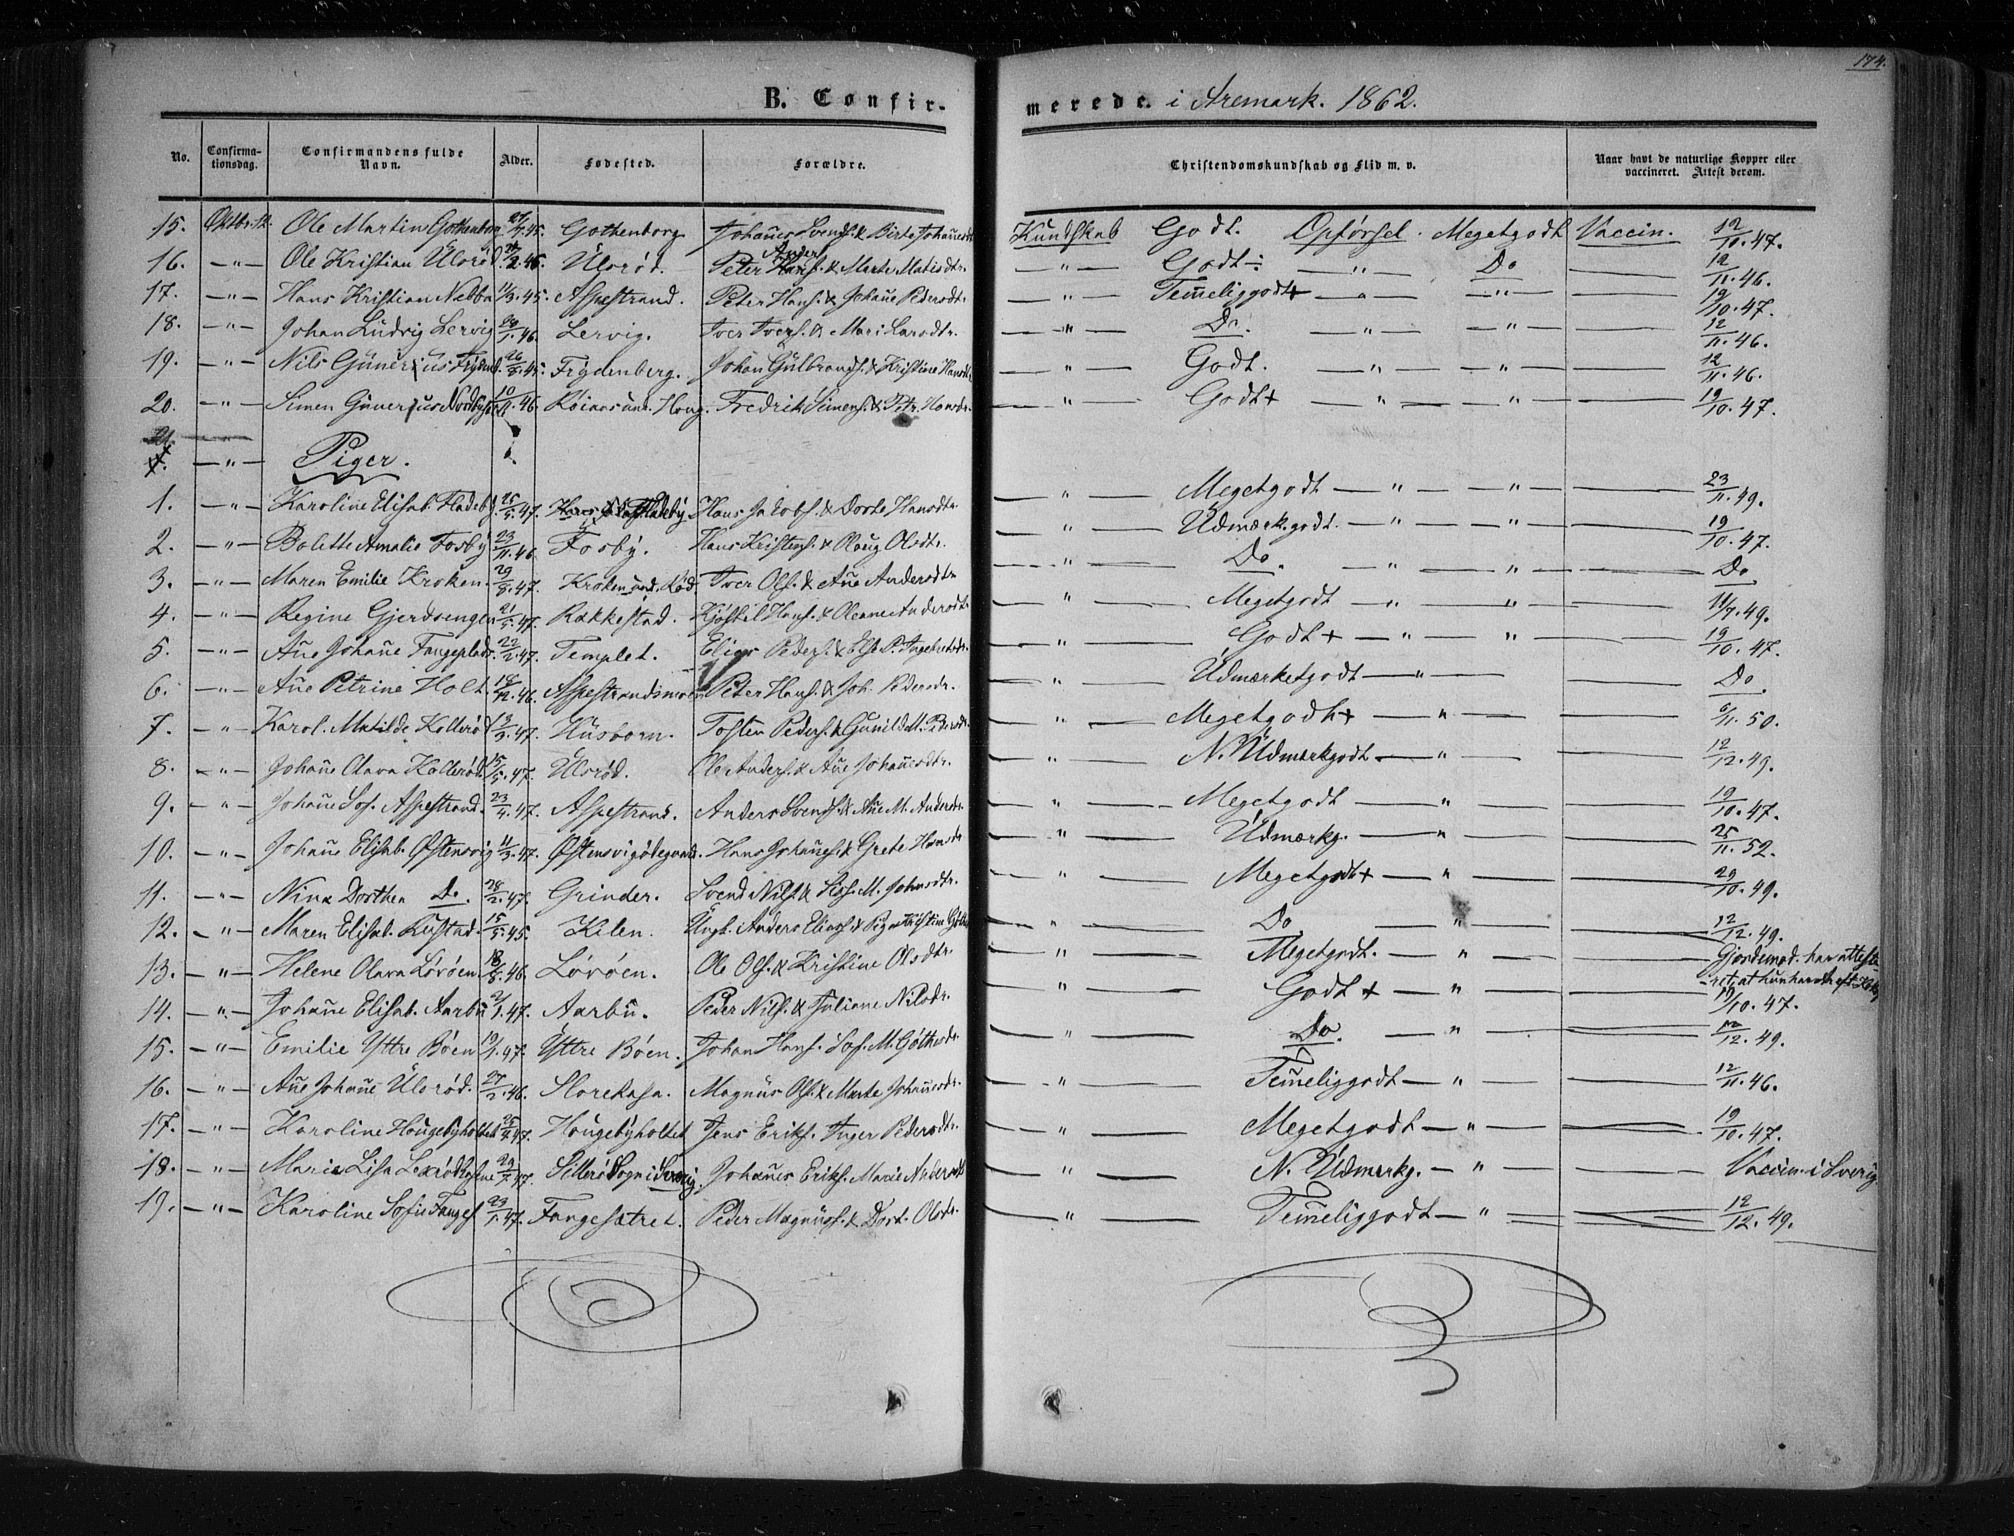 174.
B. Confirmerede. i Aremark. 1862.
No. Confirmationsdag. Confirmandens fulde Navn. Alder. Fødested. Forældre. Christendomskundskab og Flid m. v. Naar havt de naturlige Kopper eller vaccineret. Attest derom.
15. Ole Martin 27/7.45. Gothenborg. Johanes Svends. & Birte Johanesdt. Kundskab Godt. Opførsel. Megetgodt Vaccin. 12/10.47.
16. —"— Ole Kristian Ülsrød. Ülsrød. Peter Anders. & Marte Matisdtr. —"— Godt÷ —"— Do — 12/11.46.
17. —"— Hans Kristian Nebba 11/3.45. Aspestrand. Peter Hans. & Johañe Pedersdtr. —"— Temeliggodt+ —"— —"— — 19/10.47.
18. —"— Johan Ludvig Lervig 29/1.46. Lervig. Iver Ivers. & Mari Larsdtr. —"— Do. —"— —"— — 12/11.46.
19. —"— Nils Günerius 26/8.45. Frydenberg. Johan Gulbrands. & Kristine Hansdtr. —"— Godt. —"— —"— — 12/11.46.
20. —"— Simen Günerius 46. Houg. Fredrik Simens. & Hansdtr. —"— Godt+ —"— —"— — 19/10.47.
21.
—"— Piger.
1. —"— Karoline Elisab. Fladeby 25/5.47. Fladeby. Hans Jakobs. & Dorte Hansdtr. —"— Megetgodt —"— —"— — 23/11.49.
2. —"— Bolette Amalie Fosby 23/11.46. Fosby. Hans Kristens. & Olaug Olsdtr. —"— Udmærk.godt. —"— —"— — 19/10.47.
3. —"— Maren Emilie Kroken. 29/8.47. Kroken und. Rød. Iver Ols. & Añe Andersdtr —"— Do. —"— —"— — Do
4. —"— Regine Gjerdsengen 21/5.47. Rakkestad. Kjøstel Hans. & Oleane Andersdt. —"— Megetgodt —"— —"— — 11/7.49.
5. —"— Añe Johañe 22/2.47. Templet. Elias Peders. & Else P. —"— Godt+ —"— —"— — 19/10.47.
6. —"— Añe Petrine Holt. 18/12.46. Aspestrandsmoen Peter Hans. & Joh. Pedersdr. —"— Udmærketgodt —"— — Do.
7. —"— Karol. Matilde Kollerød 47. Husborn. Tosten Peders. & Gunild M. —"— Megetgodt+ —"— — 6/11.50.
8. —"— Johañe Olava Kollerød 15/5.47. Ülsrød. Ole Anders. & Añe Johanesdtr. —"— N. Udmærkgodt —"— — 12/12.49.
9. —"— Johañe Sof. Aspestrand. 23/4.47. Aspestrand. Anders Svends. & Añe M. Andersdtr. —"— Megetgodt —"— — 19/10.47.
10. —"— Johañe Elisab. Østensvig 11/3.47. Østensvigødegaard. Hans Johanes. & Grete Hansdr —"— Udmærkg. —"— — 25/11.52.
11. —"— Nina Dorthea Do. 28/2.47. Grinder. Svend Nils. & M. Johnsdtr. —"— Megetgodt+ —"— — 29/10.49.
12. —"— Maren Elisab. 15/5.45 Kilen. Ungk. Anders Elias. & Pige Kristine —"— Do —"— — 12/12.49.
13. —"— Helene Olava Lørøen. 18/8.46. Lørøen. Ole Ols. & Kristine Olsdtr. —"— Megetgodt. —"— — Gjordemod. har atteste-
ret, at hun har
14. —"— Johañe Elisab. Aarbu 2/1.47. Aarbu. Peder Nils. & Juliane Nilsdr. —"— Godt+ —"— — 19/10.47.
15. —"— Emilie Yttre Bøen 19/1.47. Yttre Bøen. Johan Hans. Sof. M. —"— Do. —"— — 12/12.49.
16. —"— Añe Johañe Ülsrød. 27/2.46. Slorekasa. Magnus Ols. & Marte Johanesdr. —"— Temeliggodt —"— — 12/11.46.
17. —"— Karoline Hougebyholtet 47. Hougebyholtet Jens Eriks. Inger Pedersdtr. —"— Megetgodt —"— — 19/10.47.
18. —"— Marie Lisa 29/7.47. Sillerø Sogn i Sverig. Johanes Eriks. Marie Andersdt —"— N. Udmærkg. —"— — Vaccin. i Sverig
19. —"— Karoline Sofie 23/1.47. Fangesætret. Peder Magnus. & Dort. Olsdr. —"— Temeliggodt —"— — 12/12.49.